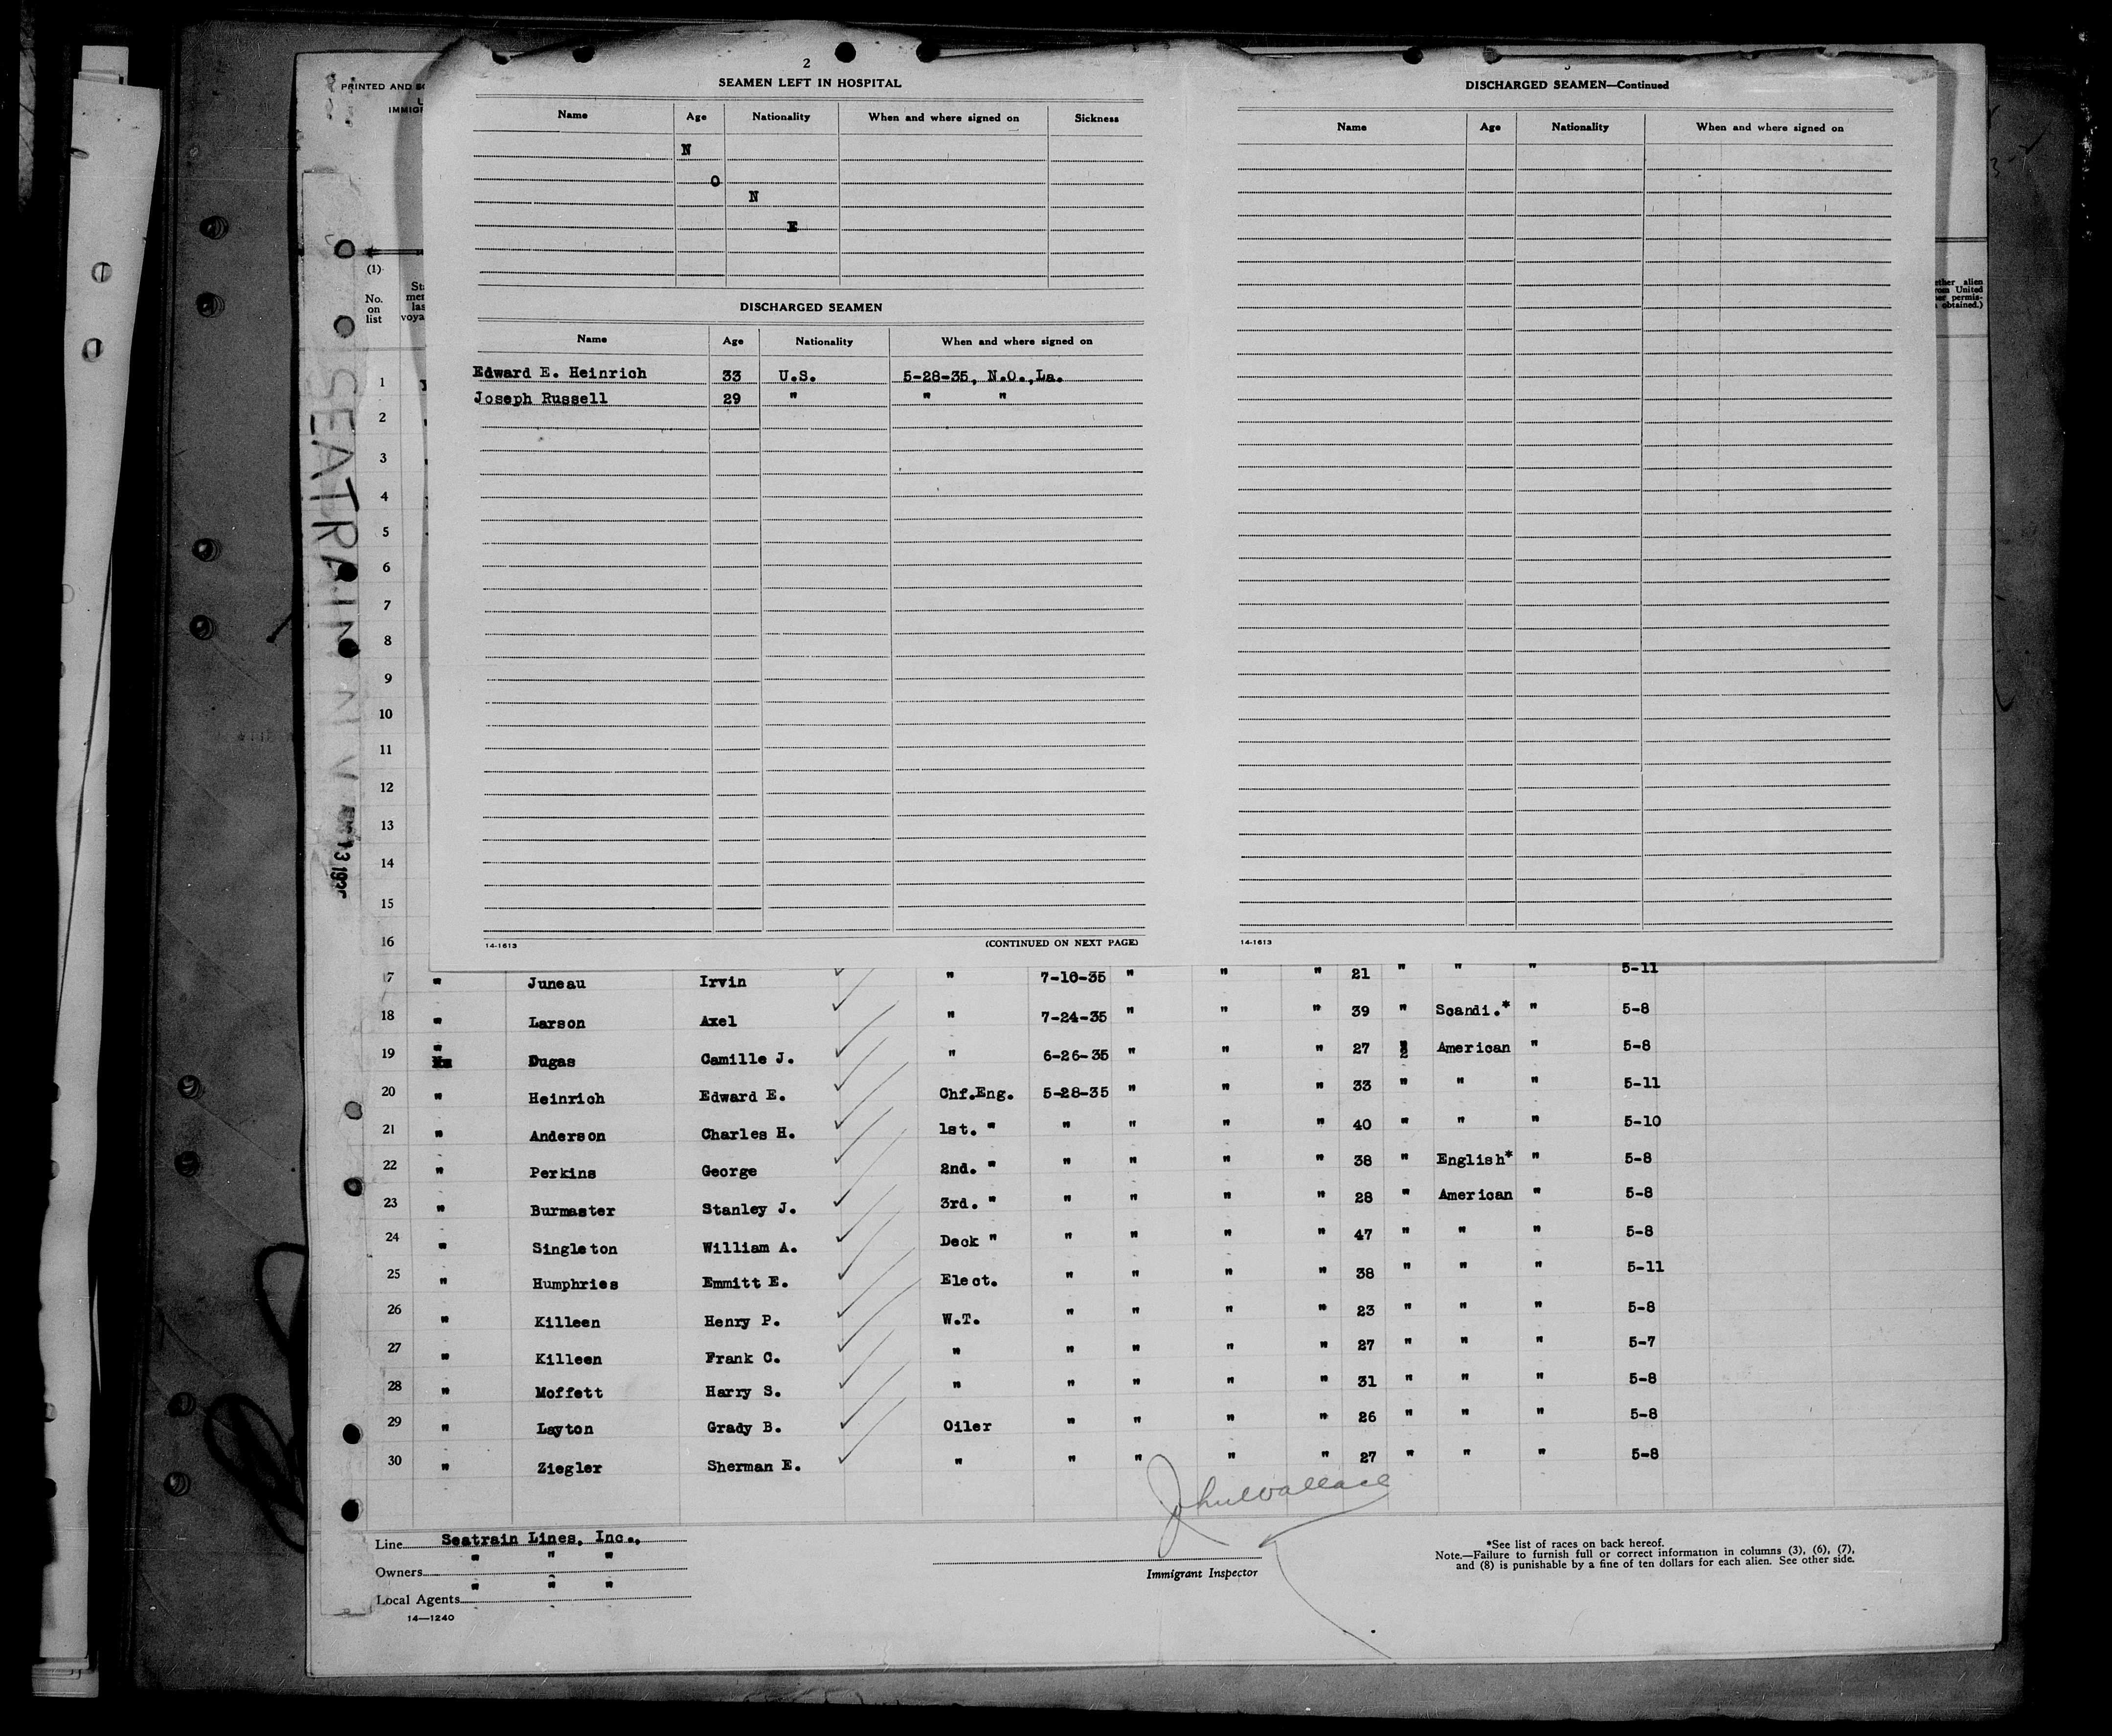 2
SEAMEN LEFT IN HOSPITAL
Name Age Nationality When and where signed on Sickness
N
O
N
E
DISCHARGED SEAMEN
Name Age Nationality When and where signed on
Edward E. Heinrich 33 U.S. 5-28-35, N.O.,La.
Joseph Russell 29 " " "
14-1613 (CONTINUED ON NEXT PAGE)
DISCHARGED SEAMEN—Continued
Name Age Nationality When and where signed on
14-1613
PRINTED AND
(1)
No.
on
list
ether alien
rom United
ner permis-
obtained.)
SEATRAIN N Y
13 193
1
2
3
4
5
6
7
8
9
10
11
12
13
14
15
16
17 " Juneau Irvin " 7-10-35 " " " 21 " " " 5-11
18 " Larson Axel " 7-24-35 " " " 39 " Scandi.* " 5-8
19 " Dugas Camille J. " 6-26-35 " " " 27 " American " 5-8
20 " Heinrich Edward E. Chf.Eng. 5-28-35 " " " 33 " " " 5-11
21 " Anderson Charles H. 1st. " " " " " 40 " " " 5-10
22 " Perkins George 2nd. " " " " " 38 " English* " 5-8
23 " Burmaster Stanley J. 3rd. " " " " " 28 " American " 5-8
24 " Singleton William A. Deck " " " " " 47 " " " 5-8
25 " Humphries Emmitt E. Elect. " " " " 38 " " " 5-11
26 " Killeen Henry P. W.T. " " " " 23 " " " 5-8
27 " Killeen Frank C. " " " " " 27 " " " 5-7
28 " Moffett Harry S. " " " " " 31 " " " 5-8
29 " Layton Grady B. Oiler " " " " 26 " " " 5-8
30 " Ziegler Sherman E. " " " " " 27 " " " 5-8
John Wallace
Immigrant Inspector
Line Seatrain Lines, Inc.,
Owners " " "
Local Agents " " "
14—1240
*See list of races on back hereof.
Note.—Failure to furnish full or correct information in columns (3), (6), (7),
and (8) is punishable by a fine of ten dollars for each alien. See other side.